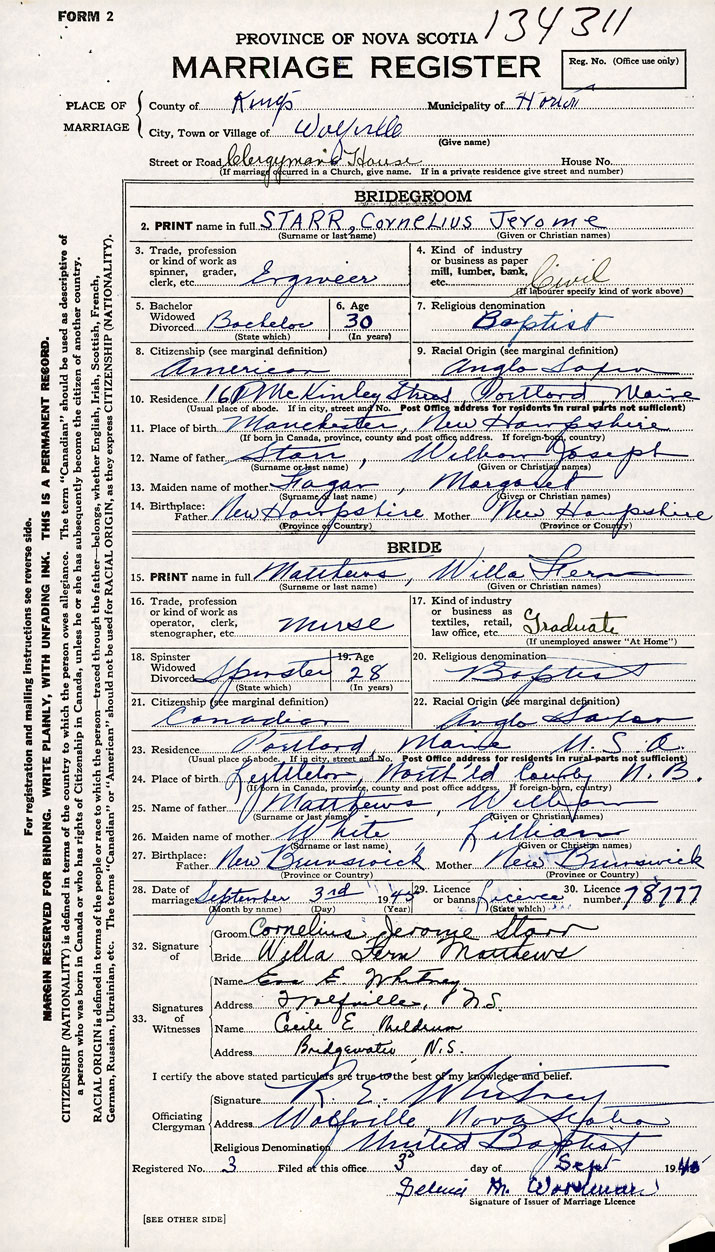 FORM 2
134311
PROVINCE OF NOVA SCOTIA
MARRIAGE REGISTER
Reg. No. (Office use only)
PLACE OF MARRIAGE
County of Kings Municipality of Horton
City, Town or Village of Wolfville
(Give name)
Street or Road Clergyman's House House No.
(If marriage occurred in a Church, give name. If in a private residence give street and number)
BRIDEGROOM
2. PRINT name in full STARR, Cornelius Jerome
(Surname or last name) (Given or Christian names)
3. Trade, profession or kind of work as spinner, grader, clerk, etc. Engineer
4. Kind of industry or business as paper mill, lumber, bank, etc. Civil
(If labourer specify kind of work above)
5. Bachelor Widowed Divorced Bachelor
(State which)
6. Age 30
(In years)
7. Religious denomination Baptist
8. Citizenship (see marginal definition) American
9. Racial Origin (see marginal definition) Anglo Saxon
10. Residence McKinley Street, Portland Maine
(Usual place of abode. If in city, street and No. Post Office address for residents in rural parts not sufficient)
11. Place of birth Manchester, New Hampshire
(If born in Canada, province, county and post office address. If foreign-born, country)
12. Name of father Starr, William Joseph
(Surname or last name) (Given or Christian names)
13. Maiden name of mother Fagan, Margaret
(Surname or last name) (Given or Christian names)
14. Birthplace: Father New Hampshire Mother New Hampshire
(Province or Country) (Province or Country)
BRIDE
15. PRINT name in full Matthews, Willa Fern
(Surname or last name) (Given or Christian names)
16. Trade, profession or kind of work as operator, clerk, stenographer, etc. Nurse
17. Kind of industry or business as textiles, retail, law office, etc. Graduate
(If unemployed answer "At Home")
18. Spinster Widowed Divorced Spinster
(State which)
19. Age 28
(In years)
20. Religious denomination Baptist
21. Citizenship (see marginal definition) Canadian
22. Racial Origin (see marginal definition) Anglo Saxon
23. Residence Portland, Maine U.S.A.
(Usual place of abode. If in city, street and No. Post Office address for residents in rural parts not sufficient)
24. Place of birth North'ld County N.B.
(If born in Canada, province, county and post office address. If foreign-born, country)
25. Name of father Matthews, William
(Surname or last name) (Given or Christian names)
26. Maiden name of mother White, Lillian
(Surname or last name) (Given or Christian names)
27. Birthplace: Father New Brunswick Mother New Brunswick
(Province or Country) (Province or Country)
28. Date of marriage September 3rd 1945
(Month by name) (Day) (Year)
29. Licence or banns Licence
(State which)
30. Licence number 78177
32. Signature of
Groom Cornelius Jerome Starr
Bride Willa Fern Matthews
33. Signatures of Witnesses
Name Eva E. Whitney
Address Wolfville, N.S.
Name Cecile E Meldrum
Address Bridgewater, N.S.
I certify the above stated particulars are true to the best of my knowledge and belief.
Officiating Clergyman
Signature R. E. Whitney
Address Wolfville Nova Scotia
Religious Denomination United Baptist
Registered No. 3 Filed at this office 3 day of Sept 1945
Signature of Issuer of Marriage Licence
[SEE OTHER SIDE]
For registration and mailing instructions see reverse side.
MARGIN RESERVED FOR BINDING. WRITE PLAINLY, WITH UNFADING INK. THIS IS A PERMANENT RECORD.
CITIZENSHIP (NATIONALITY) is defined in terms of the country to which the person owes allegiance. The term "Canadian" should be used as descriptive of
a person who was born in Canada or who has rights of Citizenship in Canada, unless he or she has subsequently become the citizen of another country.
RACIAL ORIGIN is defined in terms of the people or race to which the person—traced through the father—belongs, whether English, Irish, Scottish, French,
German, Russian, Ukrainian, etc. The terms "Canadian" or "American" should not be used for RACIAL ORIGIN, as they express CITIZENSHIP (NATIONALITY).